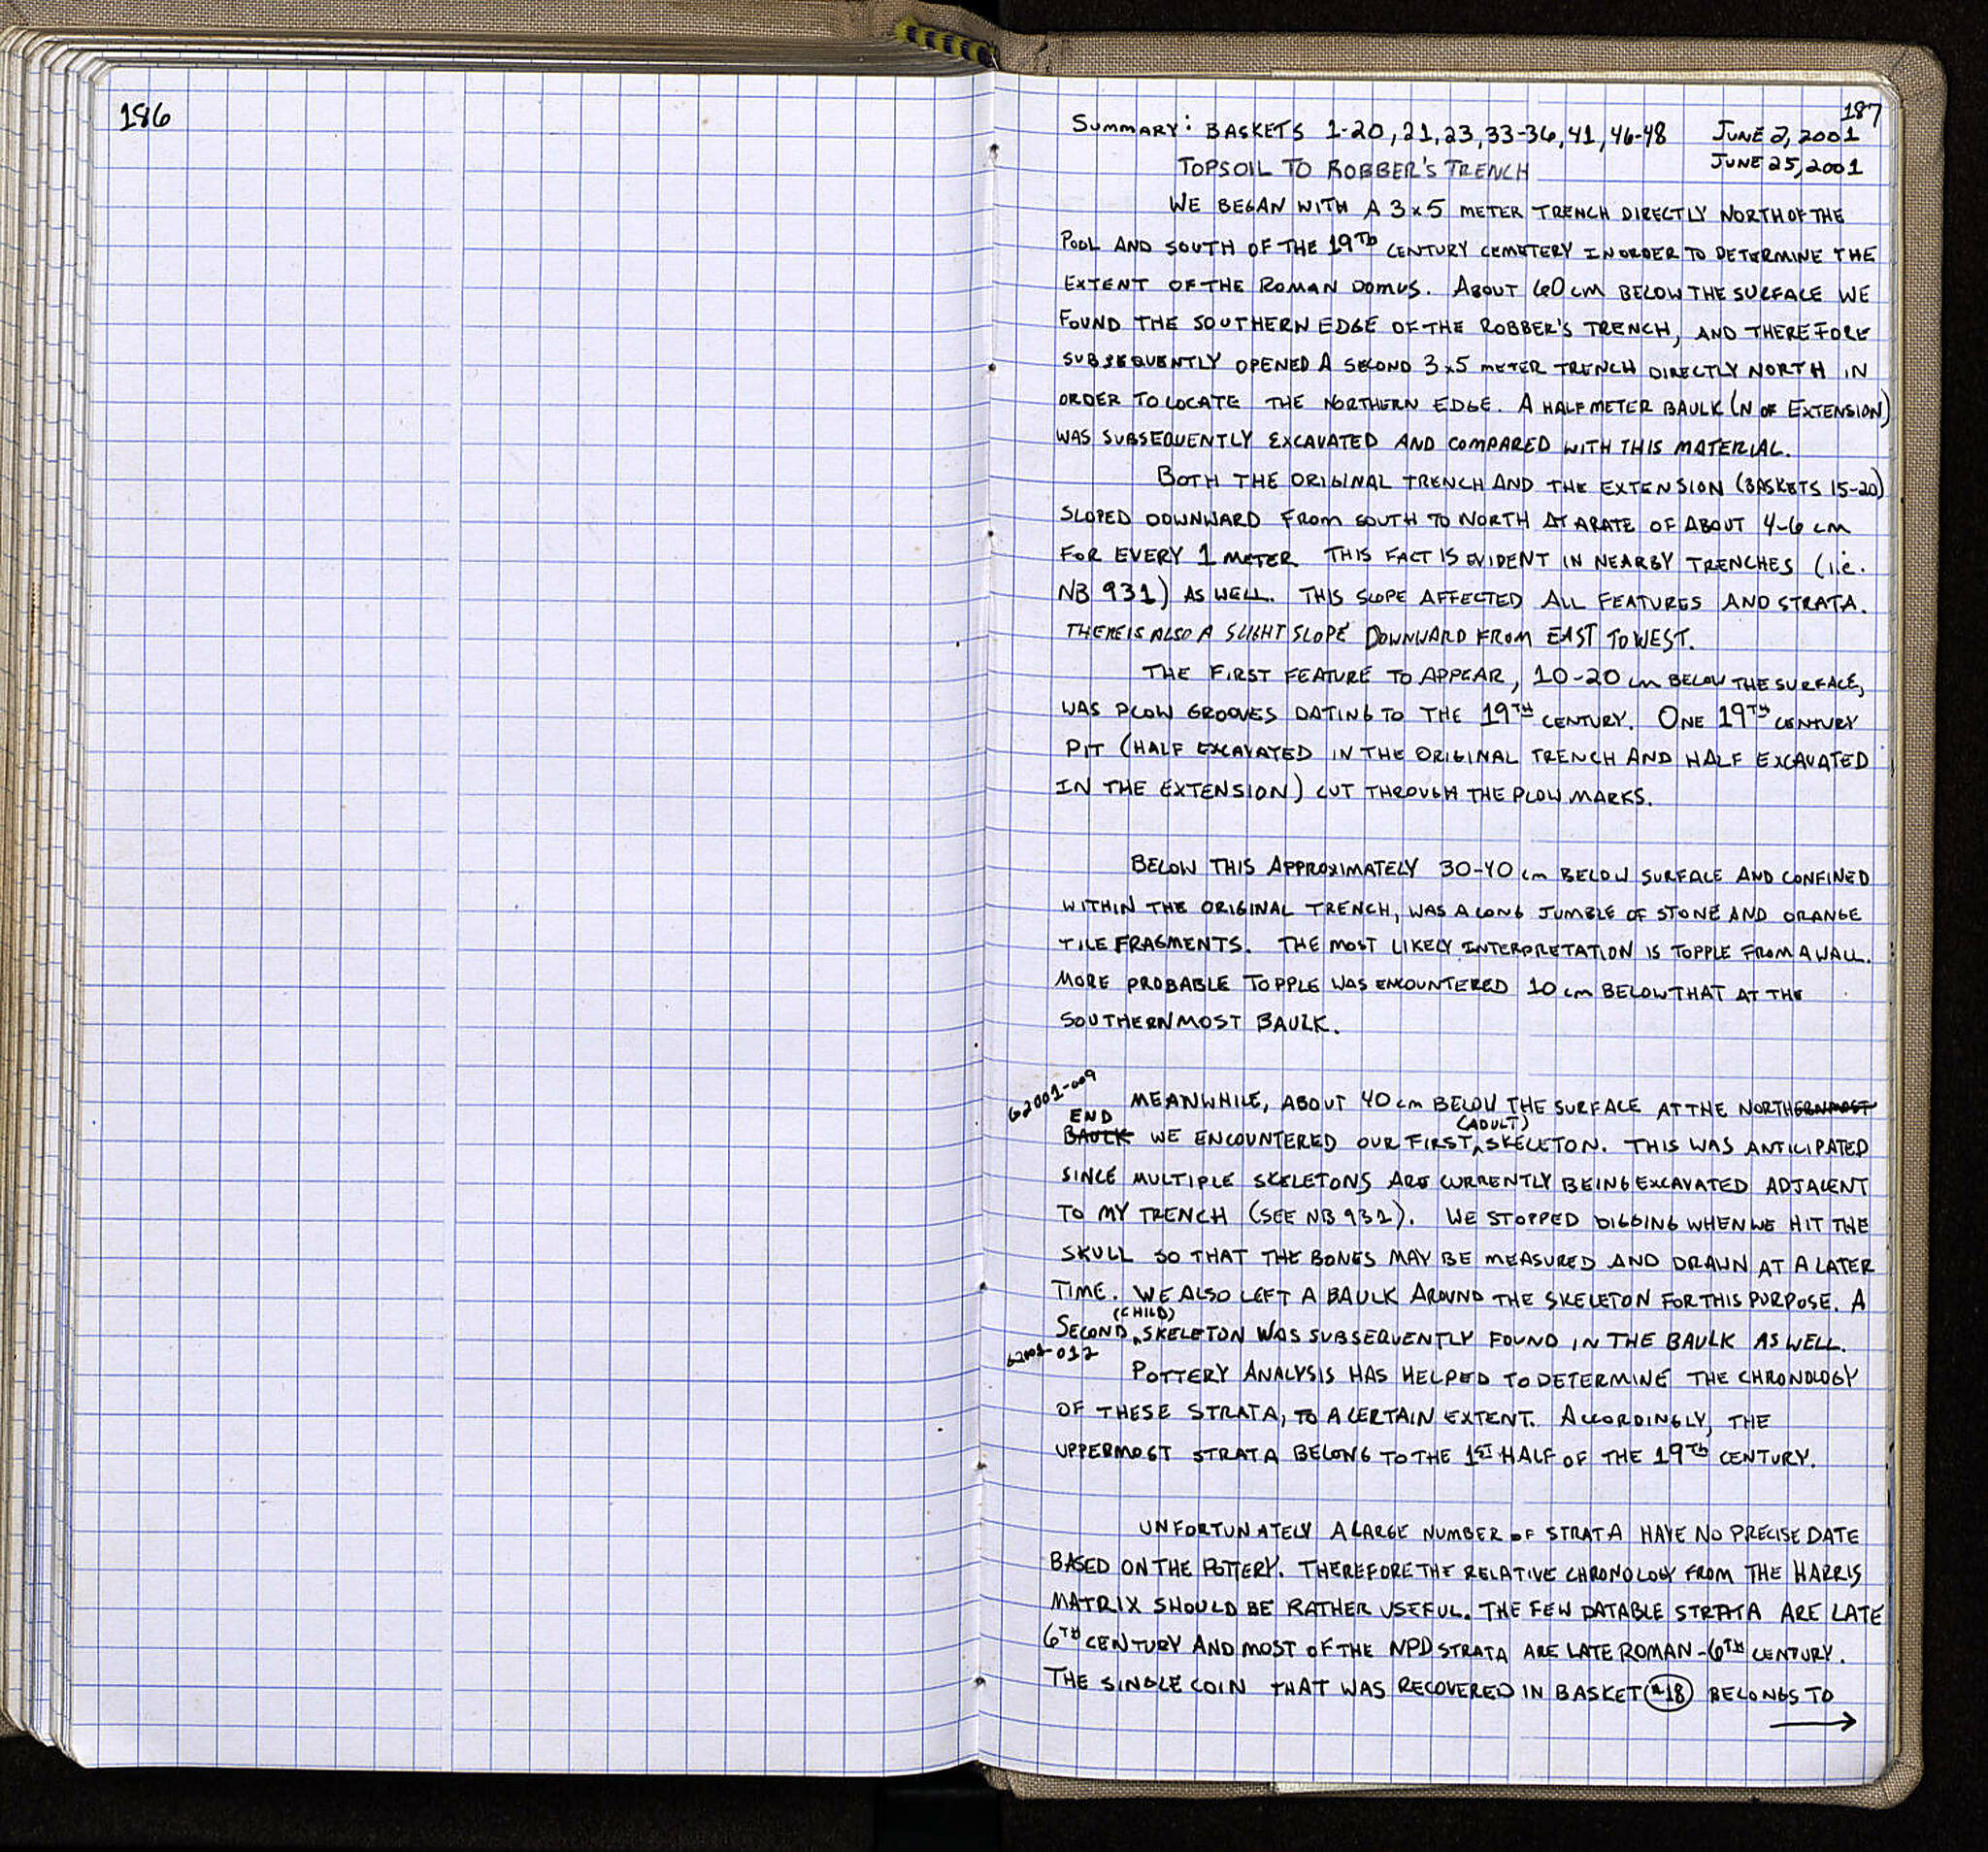 186
187
SUMMARY: BASKETS 1-20, 21, 23, 33-36, 41, 46-48 JUNE 2, 2001
TOPSOIL TO ROBBER'S TRENCH JUNE 25, 2001
WE BEGAN WITH A 3x5 METER TRENCH DIRECTLY NORTH OF THE
POOL AND SOUTH OF THE 19TH CENTURY CEMETERY IN ORDER TO DETERMINE THE
EXTENT OF THE ROMAN DOMUS. ABOUT 60 cm BELOW THE SURFACE WE
FOUND THE SOUTHERN EDGE OF THE ROBBER'S TRENCH, AND THEREFORE
SUBSEQUENTLY OPENED A SECOND 3x5 METER TRENCH DIRECTLY NORTH IN
ORDER TO LOCATE THE NORTHERN EDGE. A HALF METER BAULK (N OF EXTENSION)
WAS SUBSEQUENTLY EXCAVATED AND COMPARED WITH THIS MATERIAL.
BOTH THE ORIGINAL TRENCH AND THE EXTENSION (BASKETS 15-20)
SLOPED DOWNWARD FROM SOUTH TO NORTH AT A RATE OF ABOUT 4-6 cm
FOR EVERY 1 METER. THIS FACT IS EVIDENT IN NEARBY TRENCHES (i.e.
NB 931) AS WELL. THIS SLOPE AFFECTED ALL FEATURES AND STRATA.
THERE IS ALSO A SLIGHT SLOPE DOWNWARD FROM EAST TO WEST.
THE FIRST FEATURE TO APPEAR, 10-20 cm BELOW THE SURFACE,
WAS PLOW GROOVES DATING TO THE 19TH CENTURY. ONE 19TH CENTURY
PIT (HALF EXCAVATED IN THE ORIGINAL TRENCH AND HALF EXCAVATED
IN THE EXTENSION) CUT THROUGH THE PLOW MARKS.
BELOW THIS APPROXIMATELY 30-40 cm BELOW SURFACE AND CONFINED
WITHIN THE ORIGINAL TRENCH, WAS A LONG JUMBLE OF STONE AND ORANGE
TILE FRAGMENTS. THE MOST LIKELY INTERPRETATION IS TOPPLE FROM A WALL.
MORE PROBABLE TOPPLE WAS ENCOUNTERED 10 cm BELOW THAT AT THE
SOUTHERNMOST BAULK.
G2001-009
MEANWHILE, ABOUT 40 cm BELOW THE SURFACE AT THE NORTHERNMOST
END (ADULT)
BAULK WE ENCOUNTERED OUR FIRST SKELETON. THIS WAS ANTICIPATED
SINCE MULTIPLE SKELETONS ARE CURRENTLY BEING EXCAVATED ADJACENT
TO MY TRENCH (SEE NB 931). WE STOPPED DIGGING WHEN WE HIT THE
SKULL SO THAT THE BONES MAY BE MEASURED AND DRAWN AT A LATER
TIME. WE ALSO LEFT A BAULK AROUND THE SKELETON FOR THIS PURPOSE. A
(CHILD)
SECOND SKELETON WAS SUBSEQUENTLY FOUND IN THE BAULK AS WELL.
G2001-012
POTTERY ANALYSIS HAS HELPED TO DETERMINE THE CHRONOLOGY
OF THESE STRATA, TO A CERTAIN EXTENT. ACCORDINGLY, THE
UPPERMOST STRATA BELONG TO THE 1ST HALF OF THE 19TH CENTURY.
UNFORTUNATELY A LARGE NUMBER OF STRATA HAVE NO PRECISE DATE
BASED ON THE POTTERY. THEREFORE THE RELATIVE CHRONOLOGY FROM THE HARRIS
MATRIX SHOULD BE RATHER USEFUL. THE FEW DATABLE STRATA ARE LATE
6TH CENTURY AND MOST OF THE NPD STRATA ARE LATE ROMAN-6TH CENTURY.
THE SINGLE COIN THAT WAS RECOVERED IN BASKET #18 BELONGS TO
→